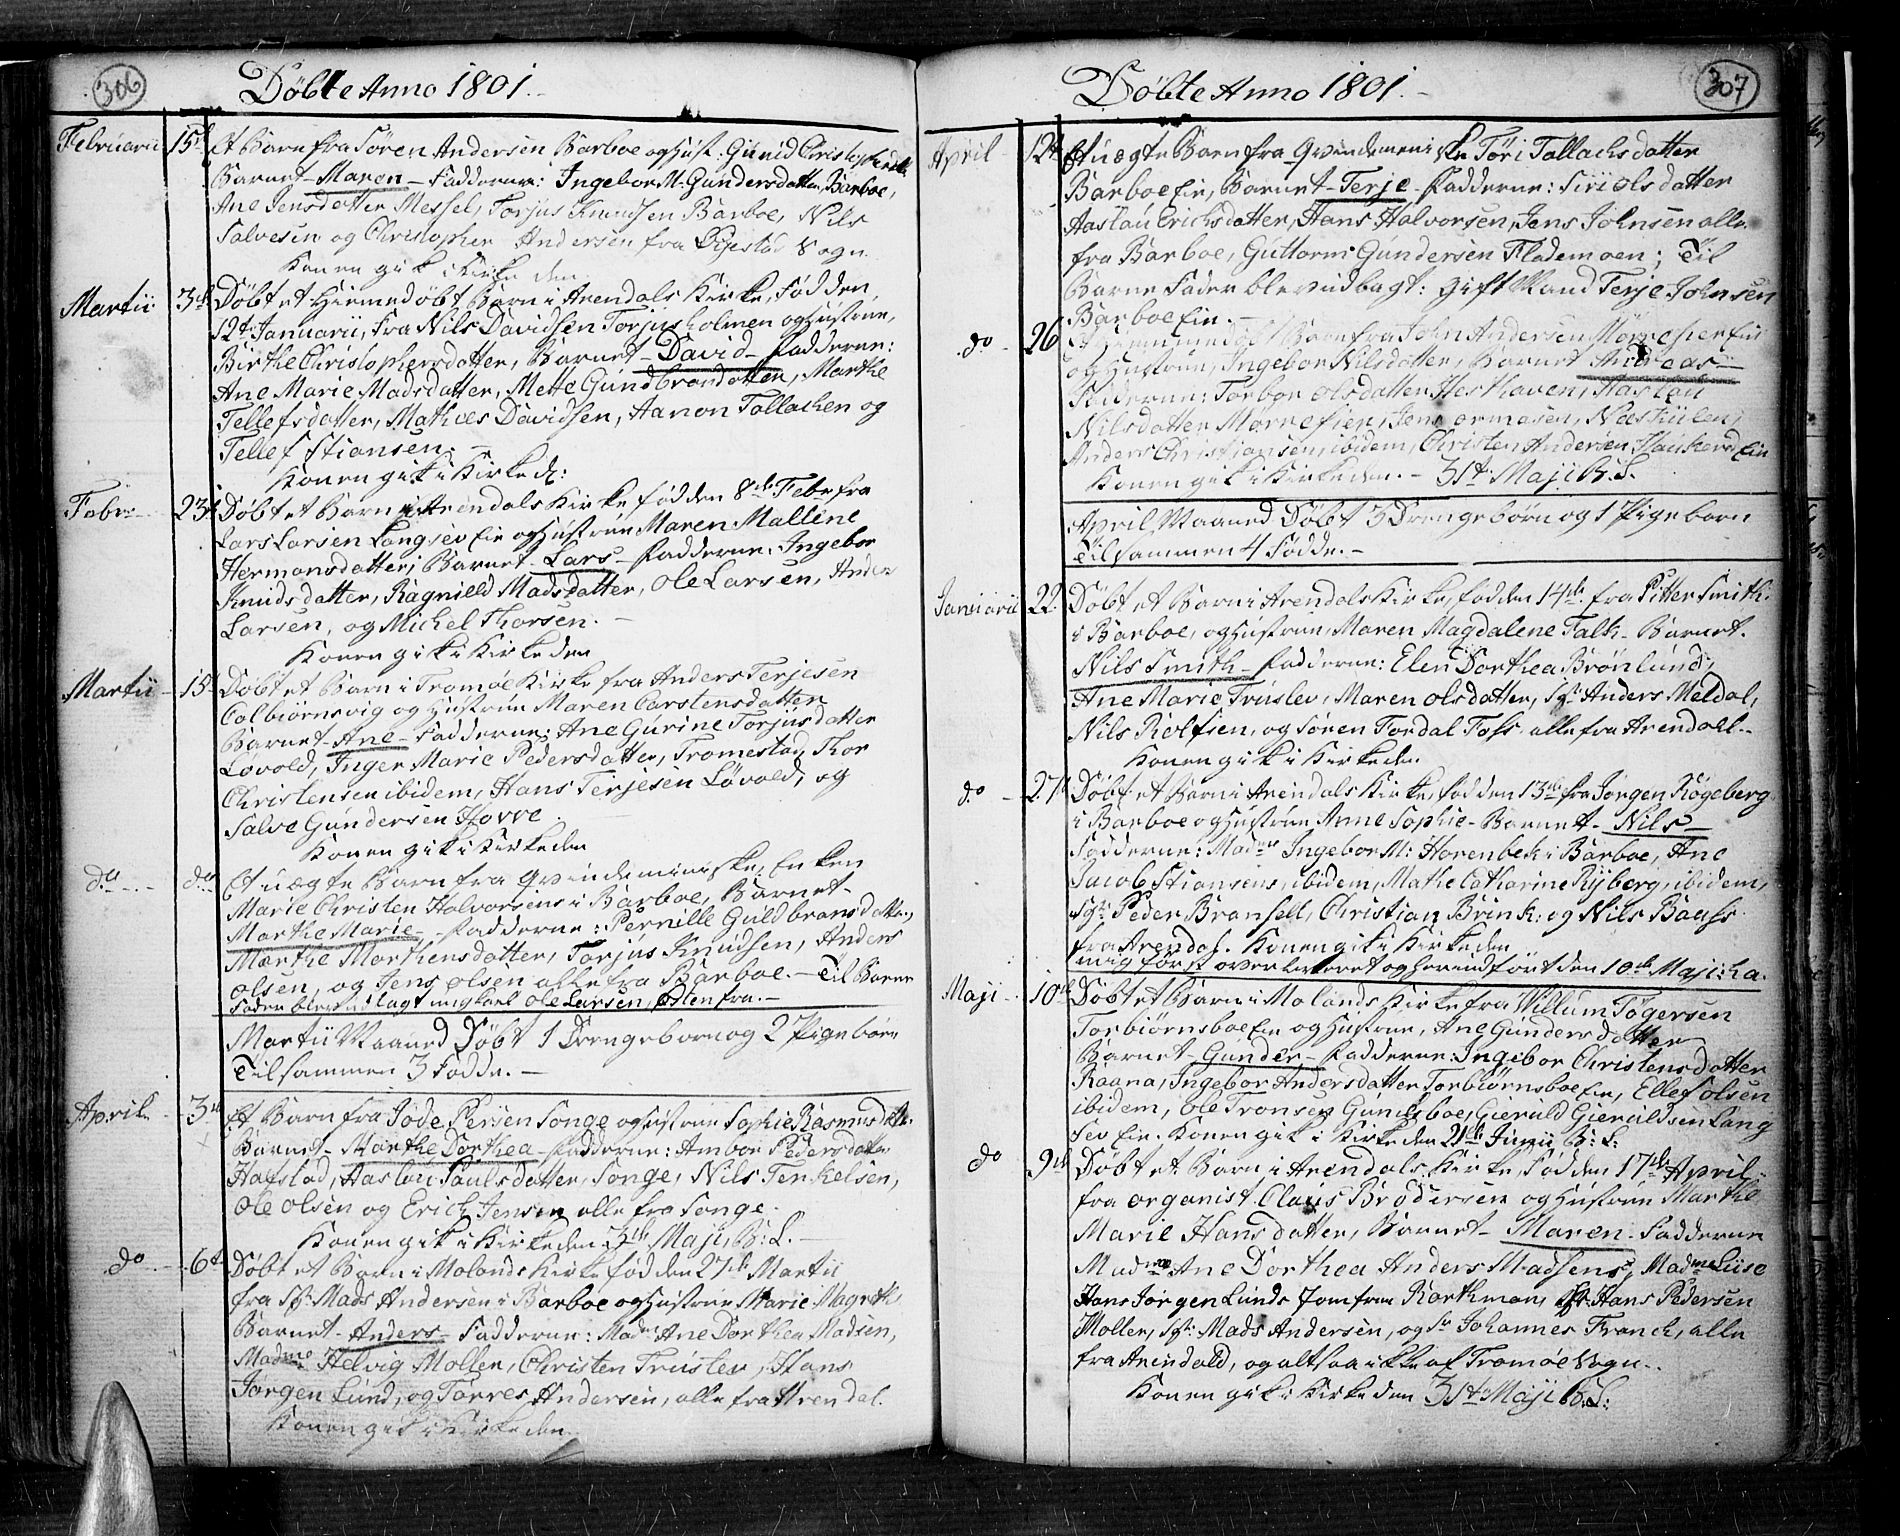 306
Döbte Anno 1801.
Februarii 15de Et Barn fra Sören Andersen Barboe og Hust: Gunild Christophersdtr
Barnet - Maren - Fadderne: Ingebor M. Gundersdatter, Barboe,
Ane Jensdatter Messel, Torjus Knudsen Barboe, Nils
Salvesen og Christopher Andersen fra Öyestad Sogn.
Konen gik i Kirke den
Martii 3de Döbt et Hiemedöbt Barn i Arendals Kirke, Född den
12te Januarii, fra Nils Davidsen Torjusholmen og Hustrue,
Birthe Christophersdatter, Barnet - David - Fadderne:
Ane Marie Madsdatter, Mette Gundbrandatter, Marthe
Tellefsdatter, Mathies Davidsen, Aanon Tollachen og
Tellef Stiansen. -
Konen gik i Kirke d:
Febr: 23de Döbt et Barn i Arendals Kirke född den 8de Febr fra
Lars Larsen Langsev Eie og Hustrue Maren Mallene
Hermansdatter, Barnet - Lars - Fadderne: Ingebor
Knudsdatter, Ragnield Madsdatter, Ole Larsen, Anders
Larsen, og Michel Thorsen. -
Konen gik i Kirke den
Martii 15de Döbt et Barn i Tromöe Kirke fra Anders Terjesen
Colbiörnsvig og Hustrue Maren Carstensdatter
Barnet - Ane - Fadderne: Ane Gurine Torjusdatter
Lövold, Inger Marie Pedersdatter, Tromestad, Thor
Christensen ibidem, Hans Terjesen Lövold, og
Salve Gundersen Hovve.
Konen gik i Kirke den
do do Et uægte Barn fra Qvindemeniske, Enken
Marie Christen Halvorsens i Barboe, Barnet -
Marthe Marie - Fadderne: Pernille Guldbransdatter,
Marthe Morthensdatter, Torjus Knudsen, Anders
Olsen, og Jens Olsen alle fra Barboe. - Til Barne
Fader blev udlagt ungkarl Ole Larsen, Edlen fra. -
Martii Maaned Döbt 1 Drengebarn og 2 Pigebörn
Tilsammen 3 Födde. -
April 3de Et Barn fra Jöde Persen Songe og Hustrue Sophie Rasmusdatter
Barnet - Marthe Dorthea - Fadderne: Ambor Pedersdatter
Hafstad, Aaslou Paulsdatter, Songe, Nils Terkelsen,
Ole Olsen og Erich Jensen alle fra Songe.
Konen gik i Kirke den 3de Maji, B: L. -
do 6te Döbt et Barn i Molands Kirke född den 27de Martii
fra Sr: Mads Andersen i Barboe og Hustrue Marie Magreth
Barnet - Anders - Fadderne: Mad: Ane Dorthea Madsen,
Madme Helvig Moller, Christen Truslev, Hans
Jörgen Lund, og Torres Andersen, alle fra Arendal.
Konen gik i Kirke den
307
Döbte Anno 1801.
April 12te Et uægte Barn fra Qvindemeniske Töri Tollachsdatter
Barboe Eie, Barnet - Terje - Fadderne: Siri Olsdatter
Aaslau Erichsdatter, Hans Halvorsen, Jens Johnsen alle
fra Barboe, Guttorm Gundersen Flademoen; Til
Barne Fader blev udlagt: gift Mand Terje Johnsen
Barboe Eie. -
do 26 Et Hiemmedöbt Barn fra John Andersen Mörnefier Eie
og Hustrue, Ingebor Nilsdatter, Barnet Andreas -
Fadderne: Torbor Olsdatter Hesthaven, Aaslou
Nilsdatter Mörnefien, Jens Ormasen, Næskiilen,
Anders Christiansen, ibidem, Christen Andersen Haukered Eie
Konen gik i Kirke den. - 31te Maji B. L.
April Maaned Döbt 3 Drengebörn og 1 Pigebarn
Tilsammen 4 Födde. -
Januarii 22 Döbt et Barn i Arendals Kirke, född den 14de fra Pitter Smith
i Barboe, og Hustrue, Maren Magdalene Falk - Barnet.
Nils Smith - Fadderne: Elen Dorthea Brönlund,
Ane Marie Truslev, Maren Olsdatter, Sr: Anders Meldal,
Nils Rolfsen, og Sören Tordal Foss. alle fra Arendall. -
Konen gik i Kirke den
do 27de Döbt et Barn i Arendals Kirke, född den 13de fra Jörgen Rögeberg
i Barboe og Hustrue Anne Sophie - Barnet - Nils -
Fadderne: Madme Ingebor M: Horenbek i Barboe, Ane
Jacob Stiansens, ibidem, Mathe Catharine Ryberg, ibidem,
Sr: Peder Bransell, Christian Brink, og Nils Baass
fra Arendal. Konen gik i Kirke den
mig först overleveret og herindfört den 10de Maji: ha.
Maji 10de Döbt et Barn i Molands Kirke fra Willum Tögersen
Torbiörnsboe Eie og Hustrue, Ane Gundersdatter
Barnet - Gunder - Fadderne: Ingebor Christensdatter
Raana, Ingebor Andersdatter Torbiörnsboe Eie, Ellef Olsen
ibidem, Ole Tronsen Gunilsboe, Gieruld Gieruldsen Lang
sev Eie. Konen gik i Kirke den 21de Junii B: L:
do 9de Döbt et Barn i Arendals Kirke, Född den 17de April
fra organist Claus Brodersen og Hustrue Marthe
Marie Hansdatter, Barnet - Maren - Fadderne
Madme Ane Dorthea Anders Madsens, Madme Luise
Hans Jörgen Lunds Jomfrue Rorthman, Sr. Hans Pedersen
Moller, Sr: Mads Andersen, og Sr Johannes Franck, alle
fra Arendald, og altsaa ikke af Tromöe Sogn. -
Konen gik i Kirke den 31te Maji B: L: